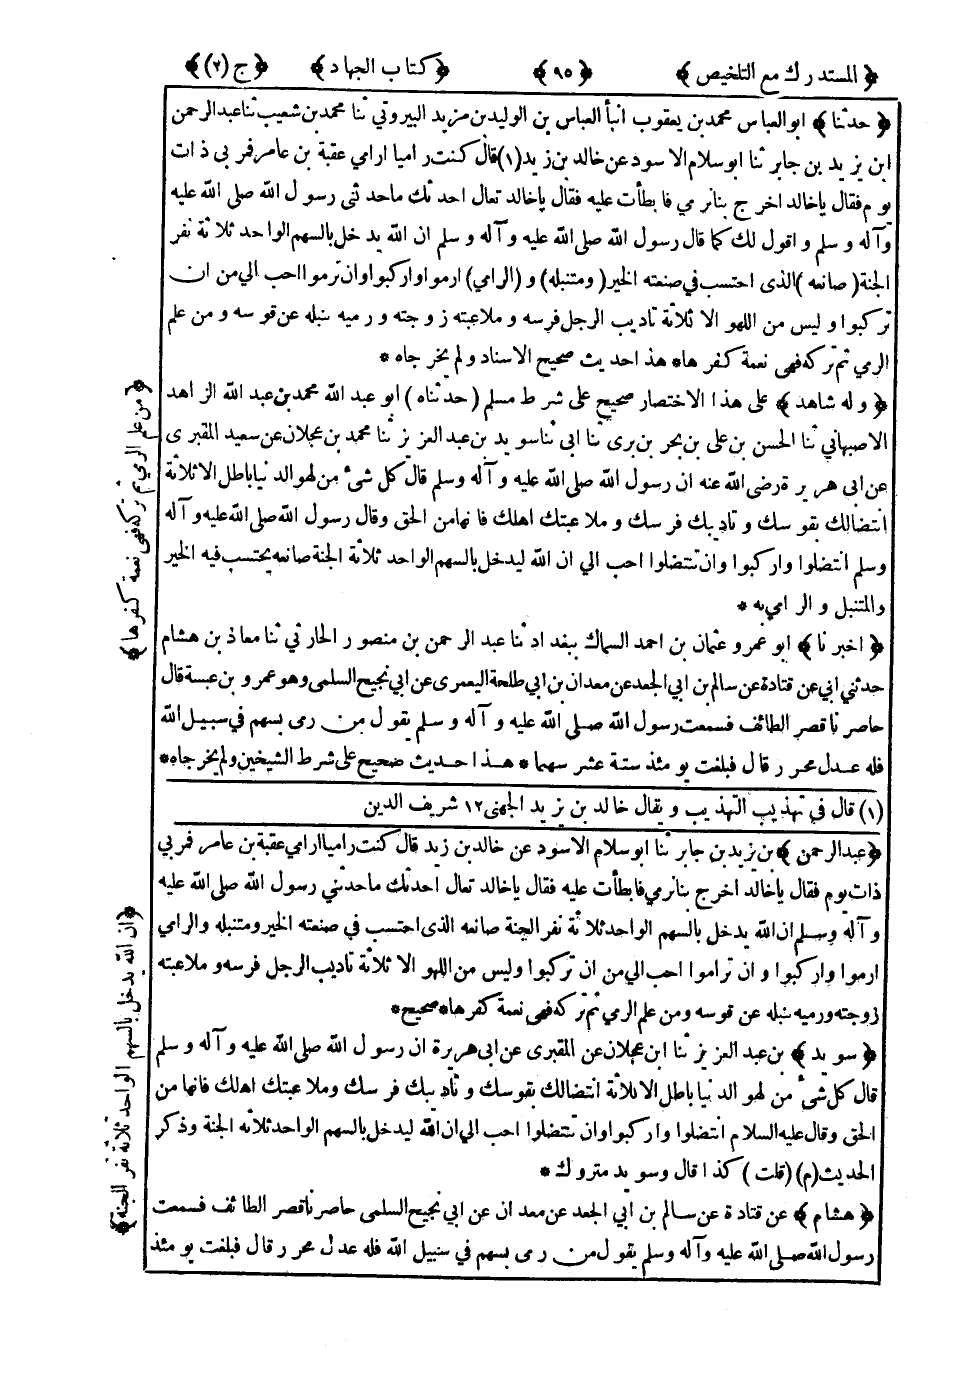 ﴿ المستدرك مع التلخيص ﴾ ﴿ ٩٥ ﴾ ﴿ كتاب الجهاد ﴾ ﴿ ج (٢) ﴾
﴿ حدثنا ﴾ ابو العباس محمد بن يعقوب انبأ العباس بن الوليد بن مزيد البيروتي ثنا محمد بن شعيب ثنا عبد الرحمن
ابن يزيد بن جابر ثنا ابو سلام الاسود عن خالد بن زيد (١) قال كنت راميا ارامي عقبة بن عامر فمر بي ذات
يوم فقال يا خالد اخرج بنا نرمي فابطأت عليه فقال يا خالد تعال احدثك ما حدثني رسول الله صلى الله عليه
وآله وسلم واقول لك كما قال رسول الله صلى الله عليه وآله وسلم ان الله يدخل بالسهم الواحد ثلاثة نفر
الجنة (صانعه) الذى احتسب في صنعته الخير (ومتنبله) و (الرامي) ارموا واركبوا وان ترموا احب الي من ان
تركبوا وليس من اللهو الا ثلاثة تاديب الرجل فرسه وملاعبته زوجته ورميه بنبله عن قوسه ومن علم
الرمي ثم تركه فهى نعمة كفرها * هذا حديث صحيح الاسناد ولم يخرجاه *
﴿ وله شاهد ﴾ على هذا الاختصار صحيح على شرط مسلم (حدثناه) ابو عبد الله محمد بن عبد الله الزاهد
الاصبهاني ثنا الحسن بن على بن بحر بن برى ثنا ابى ثنا سويد بن عبد العزيز ثنا محمد بن عجلان عن سعيد المقبرى
عن ابى هريرة رضى الله عنه ان رسول الله صلى الله عليه وآله وسلم قال كل شئ من لهو الدنيا باطل الا ثلاثة
انتضالك بقوسك وتاديبك فرسك وملاعبتك اهلك فانها من الحق وقال رسول الله صلى الله عليه وآله
وسلم انتضلوا واركبوا وان تنتضلوا احب الي ان الله ليدخل بالسهم الواحد ثلاثة الجنة صانعه يحتسب فيه الخير
والمتنبل والرامي به *
﴿ اخبرنا ﴾ ابو عمرو عثمان بن احمد السماك ببغداد ثنا عبد الرحمن بن منصور الحارثي ثنا معاذ بن هشام
حدثني ابي عن قتادة عن سالم بن ابي الجعد عن معدان بن ابي طلحة اليعمرى عن ابي نجيح السلمى وهو عمرو بن عبسة قال
حاصرنا قصر الطائف فسمعت رسول الله صلى الله عليه وآله وسلم يقول من رمى بسهم في سبيل الله
فله عدل محرر قال فبلغت يومئذ ستة عشر سهما * هذا حديث صحيح على شرط الشيخين ولم يخرجاه *
(١) قال في تهذيب التهذيب ويقال خالد بن يزيد الجهنى ١٢ شريف الدين
﴿ عبد الرحمن ﴾ بن يزيد بن جابر ثنا ابو سلام الاسود عن خالد بن زيد قال كنت راميا ارامي عقبة بن عامر فمر بي
ذات يوم فقال يا خالد اخرج بنا نرمي فابطأت عليه فقال يا خالد تعال احدثك ما حدثني رسول الله صلى الله عليه
وآله وسلم ان الله يدخل بالسهم الواحد ثلاثة نفر الجنة صانعه الذى احتسب في صنعته الخير ومتنبله والرامي
ارموا واركبوا وان تراموا احب الي من ان تركبوا وليس من اللهو الا ثلاثة تاديب الرجل فرسه وملاعبته
زوجته ورميه بنبله عن قوسه ومن علم الرمي ثم تركه فهى نعمة كفرها * صحيح *
﴿ سويد ﴾ بن عبد العزيز ثنا ابن عجلان عن المقبرى عن ابى هريرة ان رسول الله صلى الله عليه وآله وسلم
قال كل شئ من لهو الدنيا باطل الا ثلاثة انتضالك بقوسك وتأديبك فرسك وملاعبتك اهلك فانها من
الحق وقال عليه السلام انتضلوا واركبوا وان تنتضلوا احب الي ان الله ليدخل بالسهم الواحد ثلاثه الجنة وذكر
الحديث (م) (قلت) كذا قال وسويد متروك *
﴿ هشام ﴾ عن قتادة عن سالم بن ابي الجعد عن معدان عن ابي نجيح السلمى حاصرنا قصر الطائف فسمعت
رسول الله صلى الله عليه وآله وسلم يقول من رمى بسهم في سبيل الله فله عدل محرر قال فبلغت يومئذ
﴿ من علم الرمي ثم تركه فهى نعمة كفرها ﴾
﴿ ان الله يدخل بالسهم الواحد ثلاثة نفر الجنة ﴾